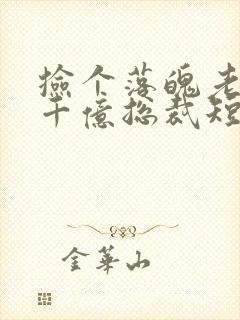 捡个落魄老
千亿总裁短
金华山